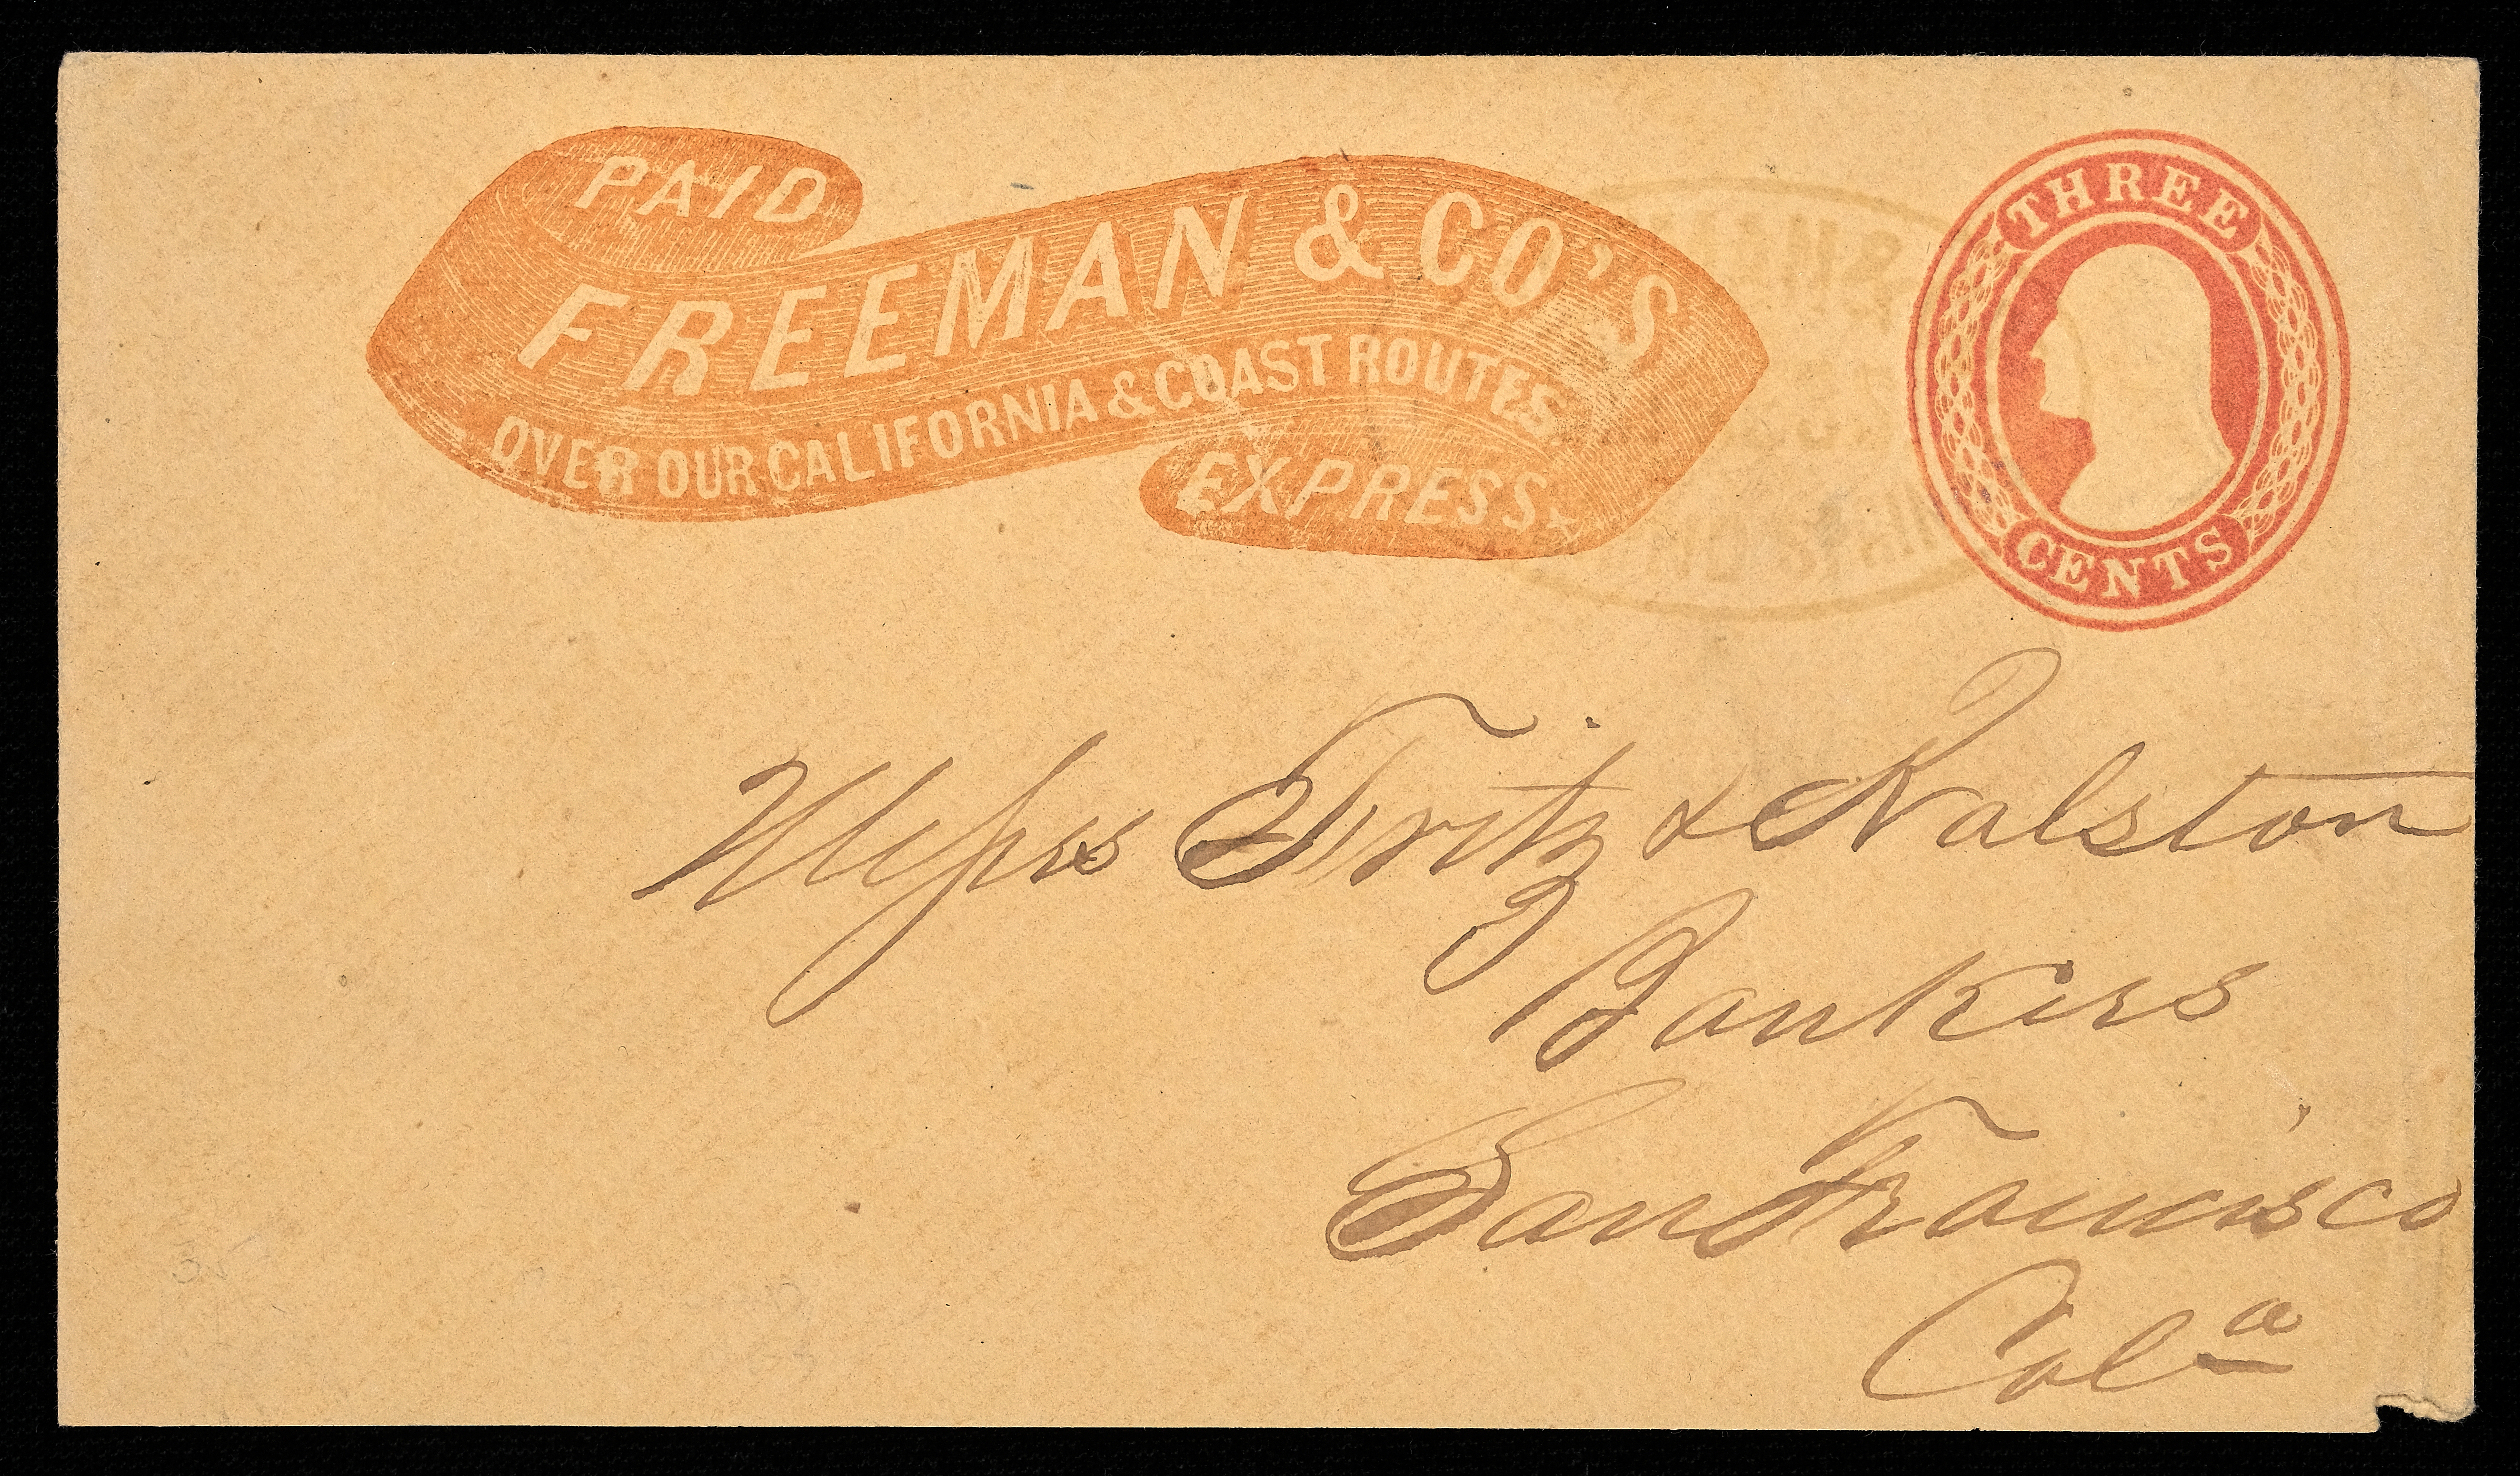 PAID
FREEMAN & CO'S
OVER OUR CALIFORNIA & COAST ROUTES
EXPRESS.
THREE
CENTS
Messrs Fritz & Ralston
Bankers
San Francisco
Cala
35